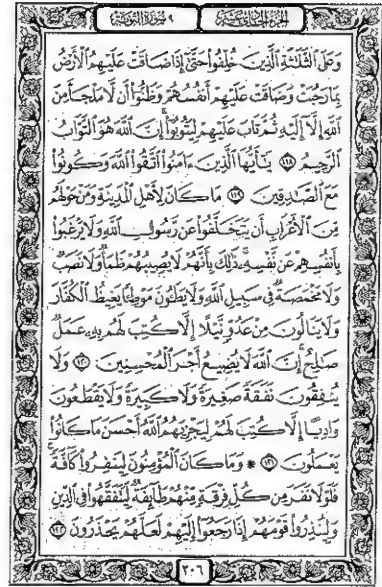 الجزء الحادي عشر ٩ سورة التوبة
وَعَلَى ٱلثَّلَـٰثَةِ ٱلَّذِينَ خُلِّفُوا۟ حَتَّىٰٓ إِذَا ضَاقَتْ عَلَيْهِمُ ٱلْأَرْضُ
بِمَا رَحُبَتْ وَضَاقَتْ عَلَيْهِمْ أَنفُسُهُمْ وَظَنُّوٓا۟ أَن لَّا مَلْجَأَ مِنَ
ٱللَّهِ إِلَّآ إِلَيْهِ ثُمَّ تَابَ عَلَيْهِمْ لِيَتُوبُوٓا۟ إِنَّ ٱللَّهَ هُوَ ٱلتَّوَّابُ
ٱلرَّحِيمُ ١١٨ يَـٰٓأَيُّهَا ٱلَّذِينَ ءَامَنُوا۟ ٱتَّقُوا۟ ٱللَّهَ وَكُونُوا۟
مَعَ ٱلصَّـٰدِقِينَ ١١٩ مَا كَانَ لِأَهْلِ ٱلْمَدِينَةِ وَمَنْ حَوْلَهُم
مِّنَ ٱلْأَعْرَابِ أَن يَتَخَلَّفُوا۟ عَن رَّسُولِ ٱللَّهِ وَلَا يَرْغَبُوا۟
بِأَنفُسِهِمْ عَن نَّفْسِهِۦ ذَٰلِكَ بِأَنَّهُمْ لَا يُصِيبُهُمْ ظَمَأٌ وَلَا نَصَبٌ
وَلَا مَخْمَصَةٌ فِى سَبِيلِ ٱللَّهِ وَلَا يَطَـُٔونَ مَوْطِئًا يَغِيظُ ٱلْكُفَّارَ
وَلَا يَنَالُونَ مِنْ عَدُوٍّ نَّيْلًا إِلَّا كُتِبَ لَهُم بِهِۦ عَمَلٌ
صَـٰلِحٌ إِنَّ ٱللَّهَ لَا يُضِيعُ أَجْرَ ٱلْمُحْسِنِينَ ١٢٠ وَلَا
يُنفِقُونَ نَفَقَةً صَغِيرَةً وَلَا كَبِيرَةً وَلَا يَقْطَعُونَ
وَادِيًا إِلَّا كُتِبَ لَهُمْ لِيَجْزِيَهُمُ ٱللَّهُ أَحْسَنَ مَا كَانُوا۟
يَعْمَلُونَ ١٢١ ۞ وَمَا كَانَ ٱلْمُؤْمِنُونَ لِيَنفِرُوا۟ كَآفَّةً
فَلَوْلَا نَفَرَ مِن كُلِّ فِرْقَةٍ مِّنْهُمْ طَآئِفَةٌ لِّيَتَفَقَّهُوا۟ فِى ٱلدِّينِ
وَلِيُنذِرُوا۟ قَوْمَهُمْ إِذَا رَجَعُوٓا۟ إِلَيْهِمْ لَعَلَّهُمْ يَحْذَرُونَ ١٢٢
٢٠٦